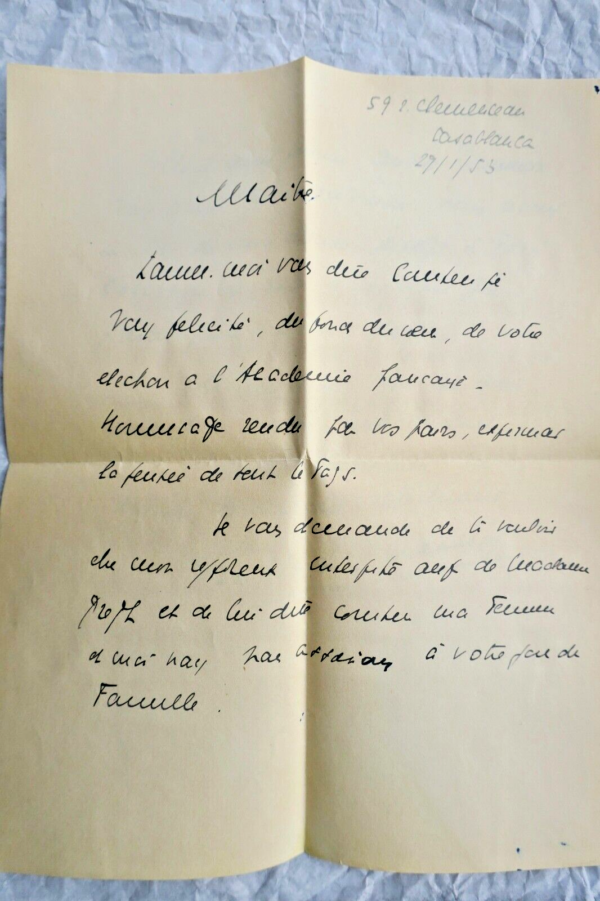 59 r. Clemenceau
Casablanca
29/1/53
Maître.
Laissez-moi vous dire combien je
vous félicite, du fond du cœur, de votre
élection à l'Académie française.
Hommage rendu par vos pairs, exprimant
la pensée de tout le Pays.
Je vous demande de bien vouloir
être mon interprète auprès de Madame
Gregh et de lui dire combien ma Femme
et moi nous nous associons à votre joie de
Famille.